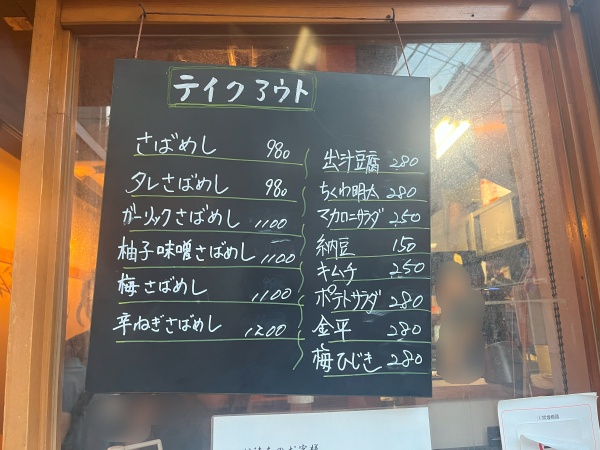 テイクアウト
さばめし 980
タレさばめし 980
ガーリックさばめし 1100
柚子味噌さばめし 1100
梅さばめし 1100
辛ねぎさばめし 1200
出汁豆腐 280
ちくわ明太 280
マカロニサラダ 250
納豆 150
キムチ 250
ポテトサラダ 280
金平 280
梅ひじき 280